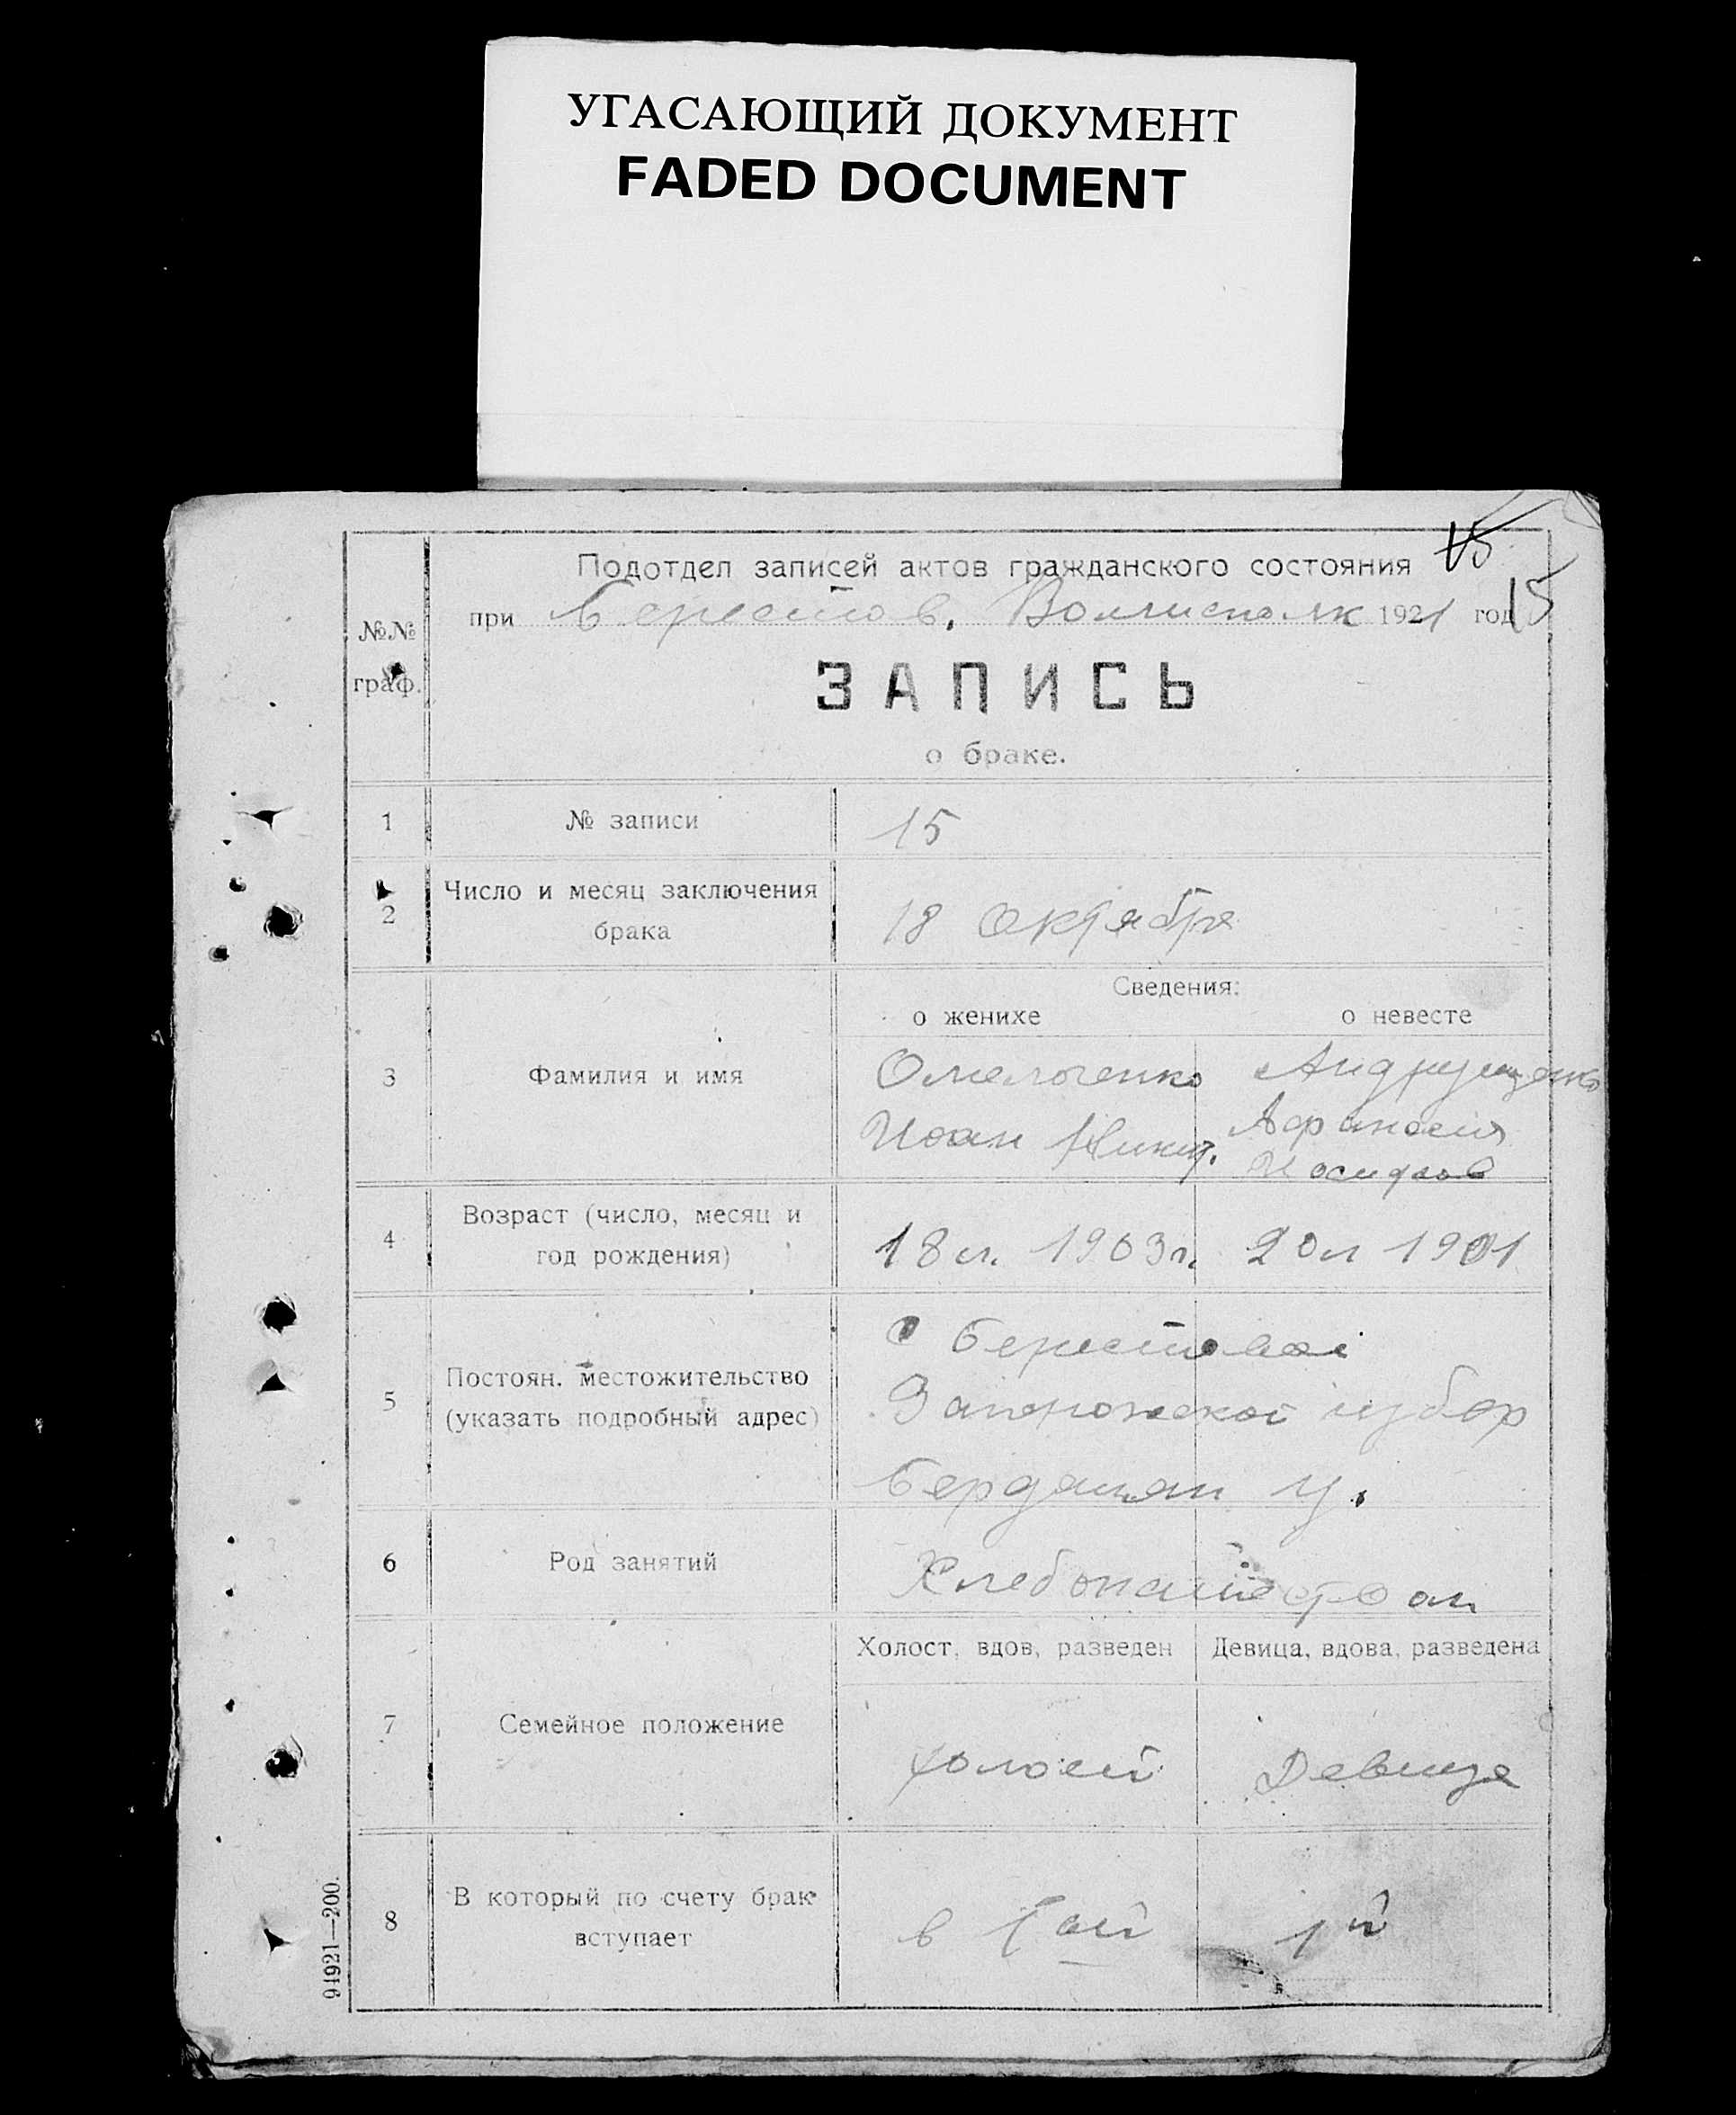 УГАСАЮЩИЙ ДОКУМЕНТ
FADED DOCUMENT
15
Подотдел записей актов гражданского состояния
при Берестов. Волисполк 1921 год
15
№№ граф.
ЗАПИСЬ
о браке.
1 № записи 15
2 Число и месяц заключения брака 18 Октября
Сведения:
о женихе о невесте
3 Фамилия и имя
Омельченко Андрущенко
Иоан Никит. Афанасия
Иосифов
4 Возраст (число, месяц и год рождения) 18 л. 1903 г. 20 л 1901
5 Постоян. местожительство (указать подробный адрес)
с Берестовой
Запорожской губер
Бердянск у.
6 Род занятий Хлебопашеством
Холост, вдов, разведен Девица, вдова, разведена
7 Семейное положение холост Девица
8 В который по счету брак вступает в 1ый 1й
91921—200.